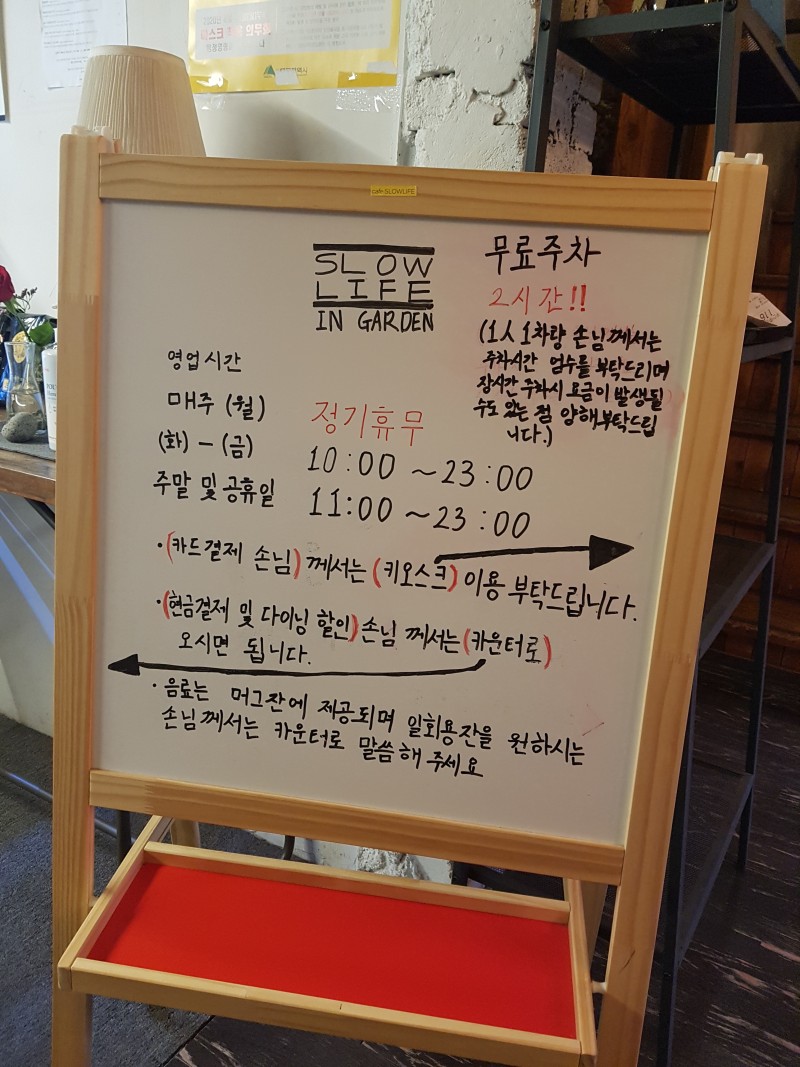 cafe SLOWLIFE
SLOW
LIFE
IN GARDEN
무료주차
2시간!!
(1人 1차량 손님께서는
주차시간 엄수를 부탁드리며
장시간 주차시 요금이 발생될
수도 있는 점 양해부탁드립
니다.)
영업시간
매주 (월) 정기휴무
(화) - (금) 10:00 ~ 23:00
주말 및 공휴일 11:00 ~ 23:00
·(카드결제 손님) 께서는 (키오스크) 이용 부탁드립니다.
·(현금결제 및 다이닝 할인) 손님 께서는 (카운터로)
오시면 됩니다.
· 음료는 머그잔에 제공되며 일회용잔을 원하시는
손님께서는 카운터로 말씀해 주세요